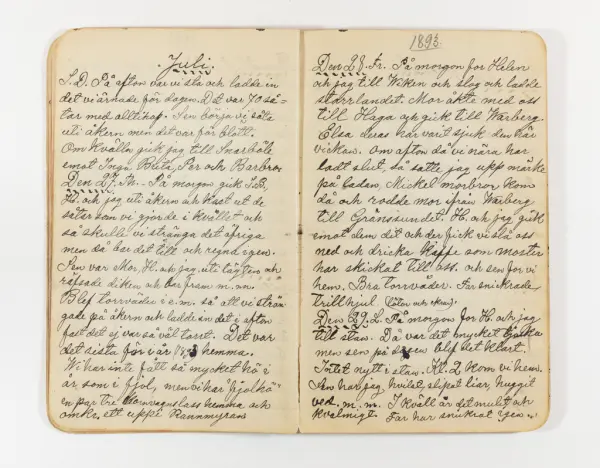 Juli.
S.D. På afton var vi sta och ladde in
det vi ärnade för dagen. Det var 70 så=
tar med alltihop. Sen börja vi såtte
uti åkern men det var för blött.
Om kvälln gick jag till Snarböle
emot Inga Brita, Per och Barbro
Den 27. Th. På morgon gick S.B,
H. och jag uti åkern och käst ut de
såtar som vi gjorde i kvällst och
så skulle vi stränga det öfriga
men då bar det till och regnd igen.
Sen var mor, H. och jag uti täggen och
räfsade diken och bar fram m.m.
Blef torrväder i e.m. så att vi strän
gade på åkern och ladde in det i afton
fast det ej var så väl torrt. Det var
det sista för vår hemma.
Vi har inte fått så mycket hö i
år som i fjol, men vi har fjolhö
en par tre hemma och
omkr. ett uppi Rannmyran
1893
Den 28. Fr. På morgon for Helen
och jag till Wiken och slog och ladde
storrlandet. Mor åkte med oss
till Haga och gick till Warberg
Elsa deras har varit sjuk den här
vickan. Om afton då vi nära har
ladt slut, så satte jag upp märke
på ladan, Mickel morbror kom
då och rodde mor ifrån Warberg
till Gransundet. H. och jag gick
emot dem dit och der fick vi slå oss
ned och dricka kaffe som moster
har skickat till oss. och sen for vi
hem. Bra torrväder. Far snickrade
trillhjul.
Den 29. L. På morgon for H. och jag
till staw. Då var det mycket tjocka
men sen på dagen blef det klart
Intet nytt i staw. Kl. 2 kom vi hem.
Sen har jag hvilat, slipat liar, huggit
ved. m. m. I kväll är det mulit och
kvalmigt. Far har snickrat igen